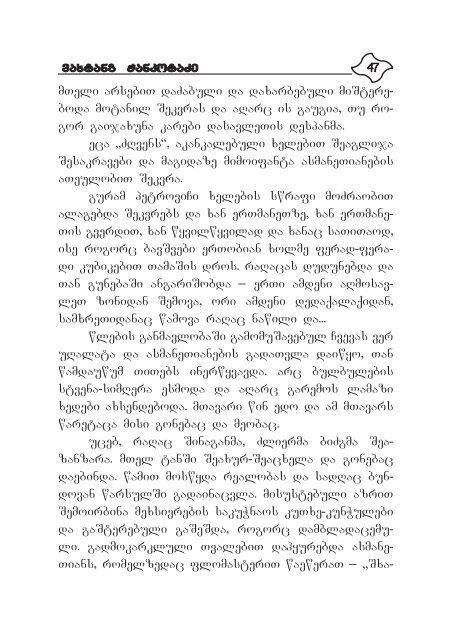 ვახტანგ ჯანჯღავაძე 47
მთელი არსებით დაძაბული და დახარბებული მიშტერე-
ბოდა მოტანილ შეკვრას და აღარც ის გაუგია, თუ რო-
გორ გაიჯახუნა კარები დასავლეთის დესპანმა.
ეცა „ძღვენს“, აკანკალებული ხელებით შეაგლიჯა
შესაკრავები და მაგიდაზე მიმოიფანტა ასმანეთიანების
ათეულობით შეკვრა.
გურამ პეტროვიჩი ხელების სწრაფი მოძრაობით
ალაგებდა შეკვრებს და ხან ერთმანეთზე, ხან ერთმანე-
თის გვერდით, ხან წყვილწყვილად და ხანაც სათითაოდ,
ისე როგორც ბავშვები ერთობიან ხოლმე ფერად-ფერა-
დი კუბიკებით თამაშის დროს. რაღაცას დუდუნებდა და
თან გუნებაში ანგარიშობდა – ერთი ამდენი აღმოსავ-
ლეთ ზონიდან შემოვა, ორი ამდენი დედაქალაქიდან,
სამხრეთიდანაც წამოვა რაღაც ნაწილი და...
წლების განმავლობაში გამომუშავებულ ჩვევას ვერ
უღალატა და ასმანეთიანების გადათვლა დაიწყო, თან
წამდაუწუმ თითებს ინერწყვავდა. არც ბულბულების
სტვენა-სიმღერა ესმოდა და აღარც გარემოს ლამაზი
ხედები ახსენდებოდა. მთავარი წინ ედო და ამ მთავარს
წარეტაცა მისი გონებაც და მეობაც.
უცებ, რაღაც შინაგანმა, ძლიერმა ბიძგმა შეა-
ზანზარა. მთელ ტანში შეახურ-შეაცხელა და გონებაც
დაებინდა. წამით მოსწყდა რეალობას და სადღაც ბუნ-
დოვან წარსულში გადაინაცვლა. მისუსტებული აზრით
შემოირბინა მეხსიერების საკუჭნაოს კუთხე-კუნჭულები
და გაშტერებული გაშეშდა, როგორც დამბლადაცემუ-
ლი. გადმოკარკლული თვალებით დაჰყურებდა ასმანე-
თიანს, რომელზედაც ფლომასტერით წაეწერათ – „შხა-